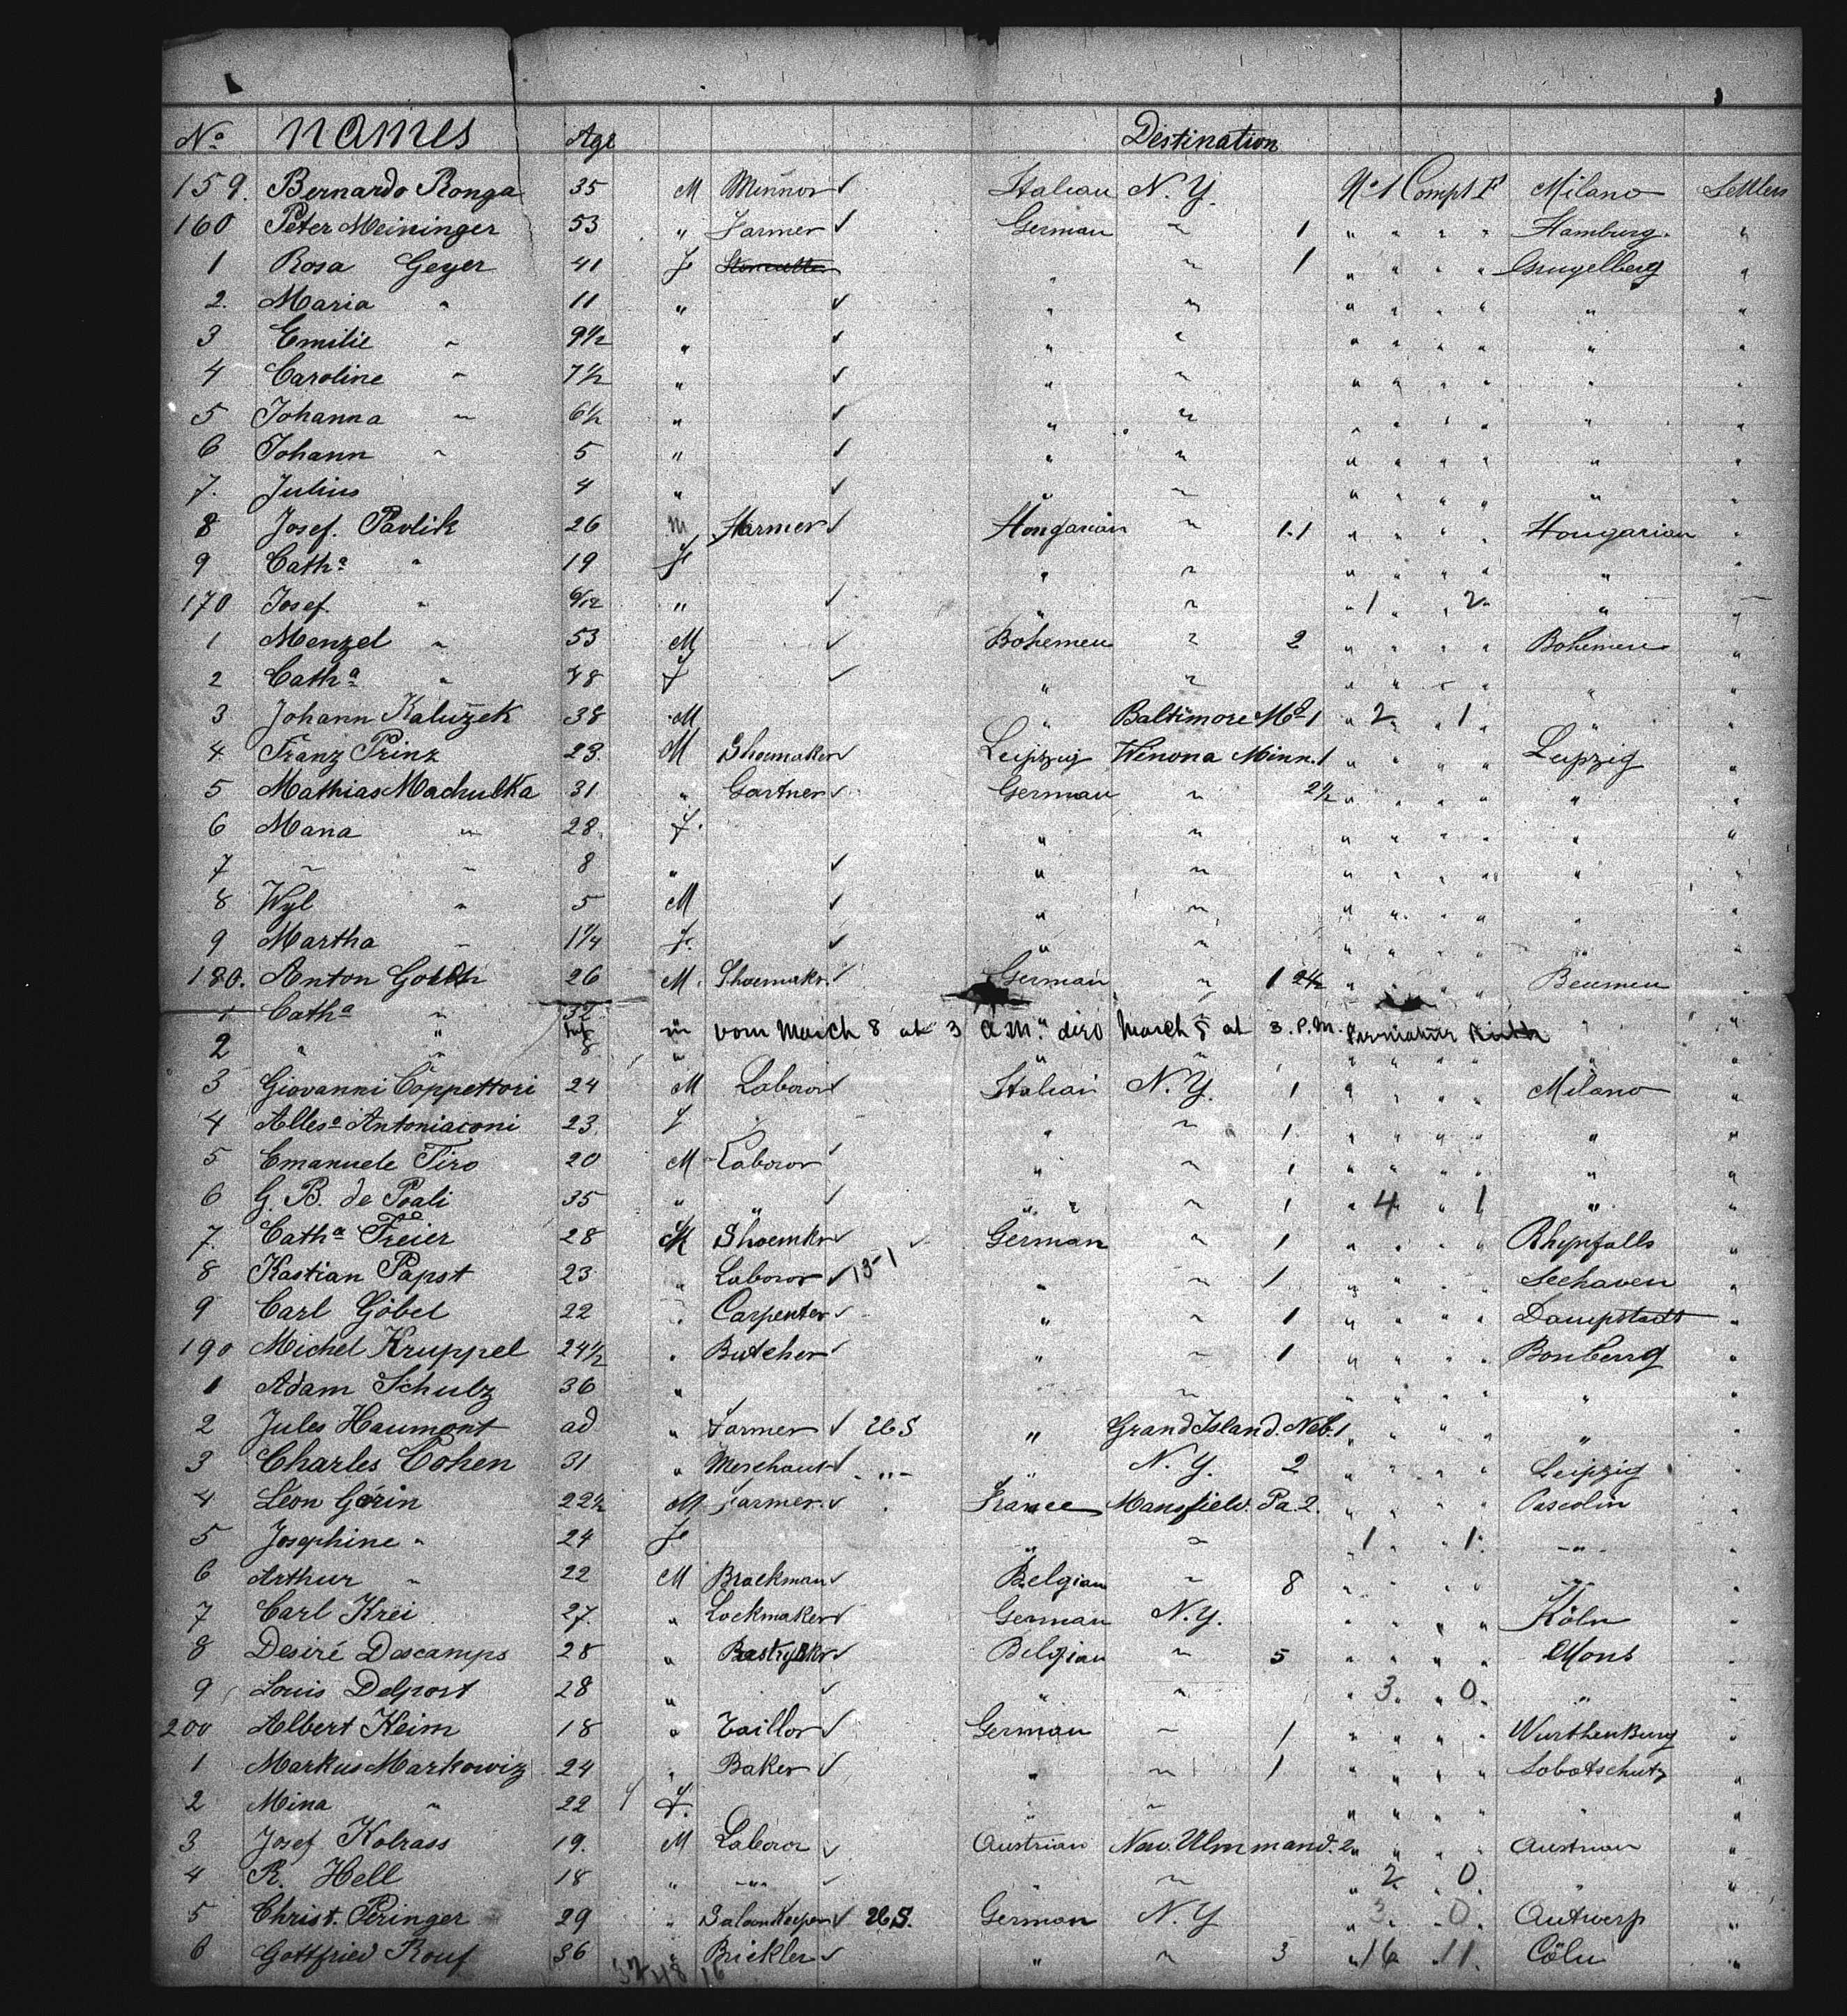 No names Age Destination
159. Bernardo Ronga 35 M Minnor ✓ Italian N.Y. No 1 Compt F Milano Settlers
160 Peter Meininger 53 " Farmer ✓ German " 1 " " " " Hamburg "
1 Rosa Geyer 41 F " " 1 " " " " "
2. Maria " 11 " ✓ " " " " " " " "
3 Emilie " 9½ " ✓ " " " " " " " "
4 Caroline " 7½ " ✓ " " " " " " " "
5 Johanna " 6½ " ✓ " " " " " " " "
6 Johann " 5 " ✓ " " " " " " " "
7. Julius 4 " ✓ " " " " " " " "
8 Josef. Pavlik 26 M Farmer ✓ Hongarian " 1.1 " " " " Hongarian "
9 Catha " 19 F " " " " " " " "
170 Josef. " 9/12 " ✓ " " " 1 " 2 " "
1 Menzel " 53 M ✓ Bohemen " 2 " " " " Bohemen "
2 Catha " 48 F ✓ " " " " " " " "
3 Johann Kaluzek 38 M " Baltimore Md 1 " 2 " 1 " "
4 Franz Prinz 23. M Shoemaker ✓ Leipzig Winona Minn. 1 " " " " Leipzig "
5 Mathias Machulka 31 " Gartner ✓ German " 2½ " " " " " "
6 Maria " 28. F. " " " " " " " "
7 " " 8 " ✓ " " " " " " " "
8 Wyl " 5 M ✓ " " " " " " " "
9 Martha " 1¼ F. ✓ " " " " " " " "
180. Anton 26 M. Shoemakr. ✓ German " 1 2½ " " " " Beumen "
1 Catha " 32 " "
2 " " Inf " vom March 8 at 3 A.M. died March 8 at 3. P.M. " "
3 Giovanni Coppettori 24 M Laboror ✓ Italian N.Y. 1 " " " " Milano "
4 Alleso Antoniaconi 23. F " " 1 " " " " " "
5 Emanuele Tiro 20 M Laboror ✓ " " 1 " " " " " "
6 G. B. de Poali 35 " " ✓ " " 1 " 4 " 1 " "
7. Catha Freier 28 M Shoemkr ✓ German " 1 " " " " Rhynfalls "
8 Kastian Papst 23 " Laboror ✓ 13-1 " " 1 " " " " Seehaven "
9 Carl Göbel 22 " Carpenter ✓ " " 1 " " " " Dampstadt "
190 Michel Kruppel 24½ " Butcher ✓ " " 1 " " " " Bonberrg "
1 Adam Schulz 36 " " " " " " " "
2 Jules Haumont ad " Farmer ✓ U.S " Grand Island. Neb. 1 " " " " " "
3 Charles Cohen 31 " Merchant ✓ " " N.Y. 2 " " " " Leipzig "
4 Léon Gérin 22½ M Farmer. ✓ France Mansfield. Pa. 2. " " " "
5 Josephine " 24 F " " " 1 " 1 " "
6 Arthur " 22 M Brackman ✓ Belgian " 8 " " " " " "
7 Carl Krei 27. " Lockmaker ✓ German N.Y. " " " " Köln "
8 Desiré Dascamps 28 " ✓ Belgian " 5 " " " " Mons "
9 Louis Delport 28 " ✓ " " " 3 " 0 " "
200 Albert Keim 18 " Taillor ✓ German " 1 " " " " Wurthenburg "
1 Markus Markowiz 24 " Baker ✓ " " 1 " " " " Sobotschutz "
2 Mina " 22 F. " " " " " " " "
3 Josef Kolrass 19. M Laboror ✓ Austrian New. Ulm mand. 2 " " " " Austrian "
4 R. Hell 18 " " ✓ " " " 2 " 0 " "
5 Christ. Peringer 29 " Saloonkeeper ✓ U.S. German N.Y " 3 " 0 Antwerp "
6 Gottfried Rouf 36 Brickler ✓ " " 3 " 16 " 11 Cöln "
32 48 16